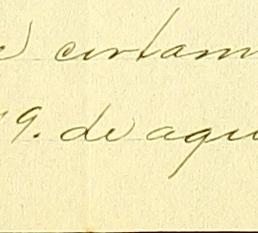 certam
9. de aqu